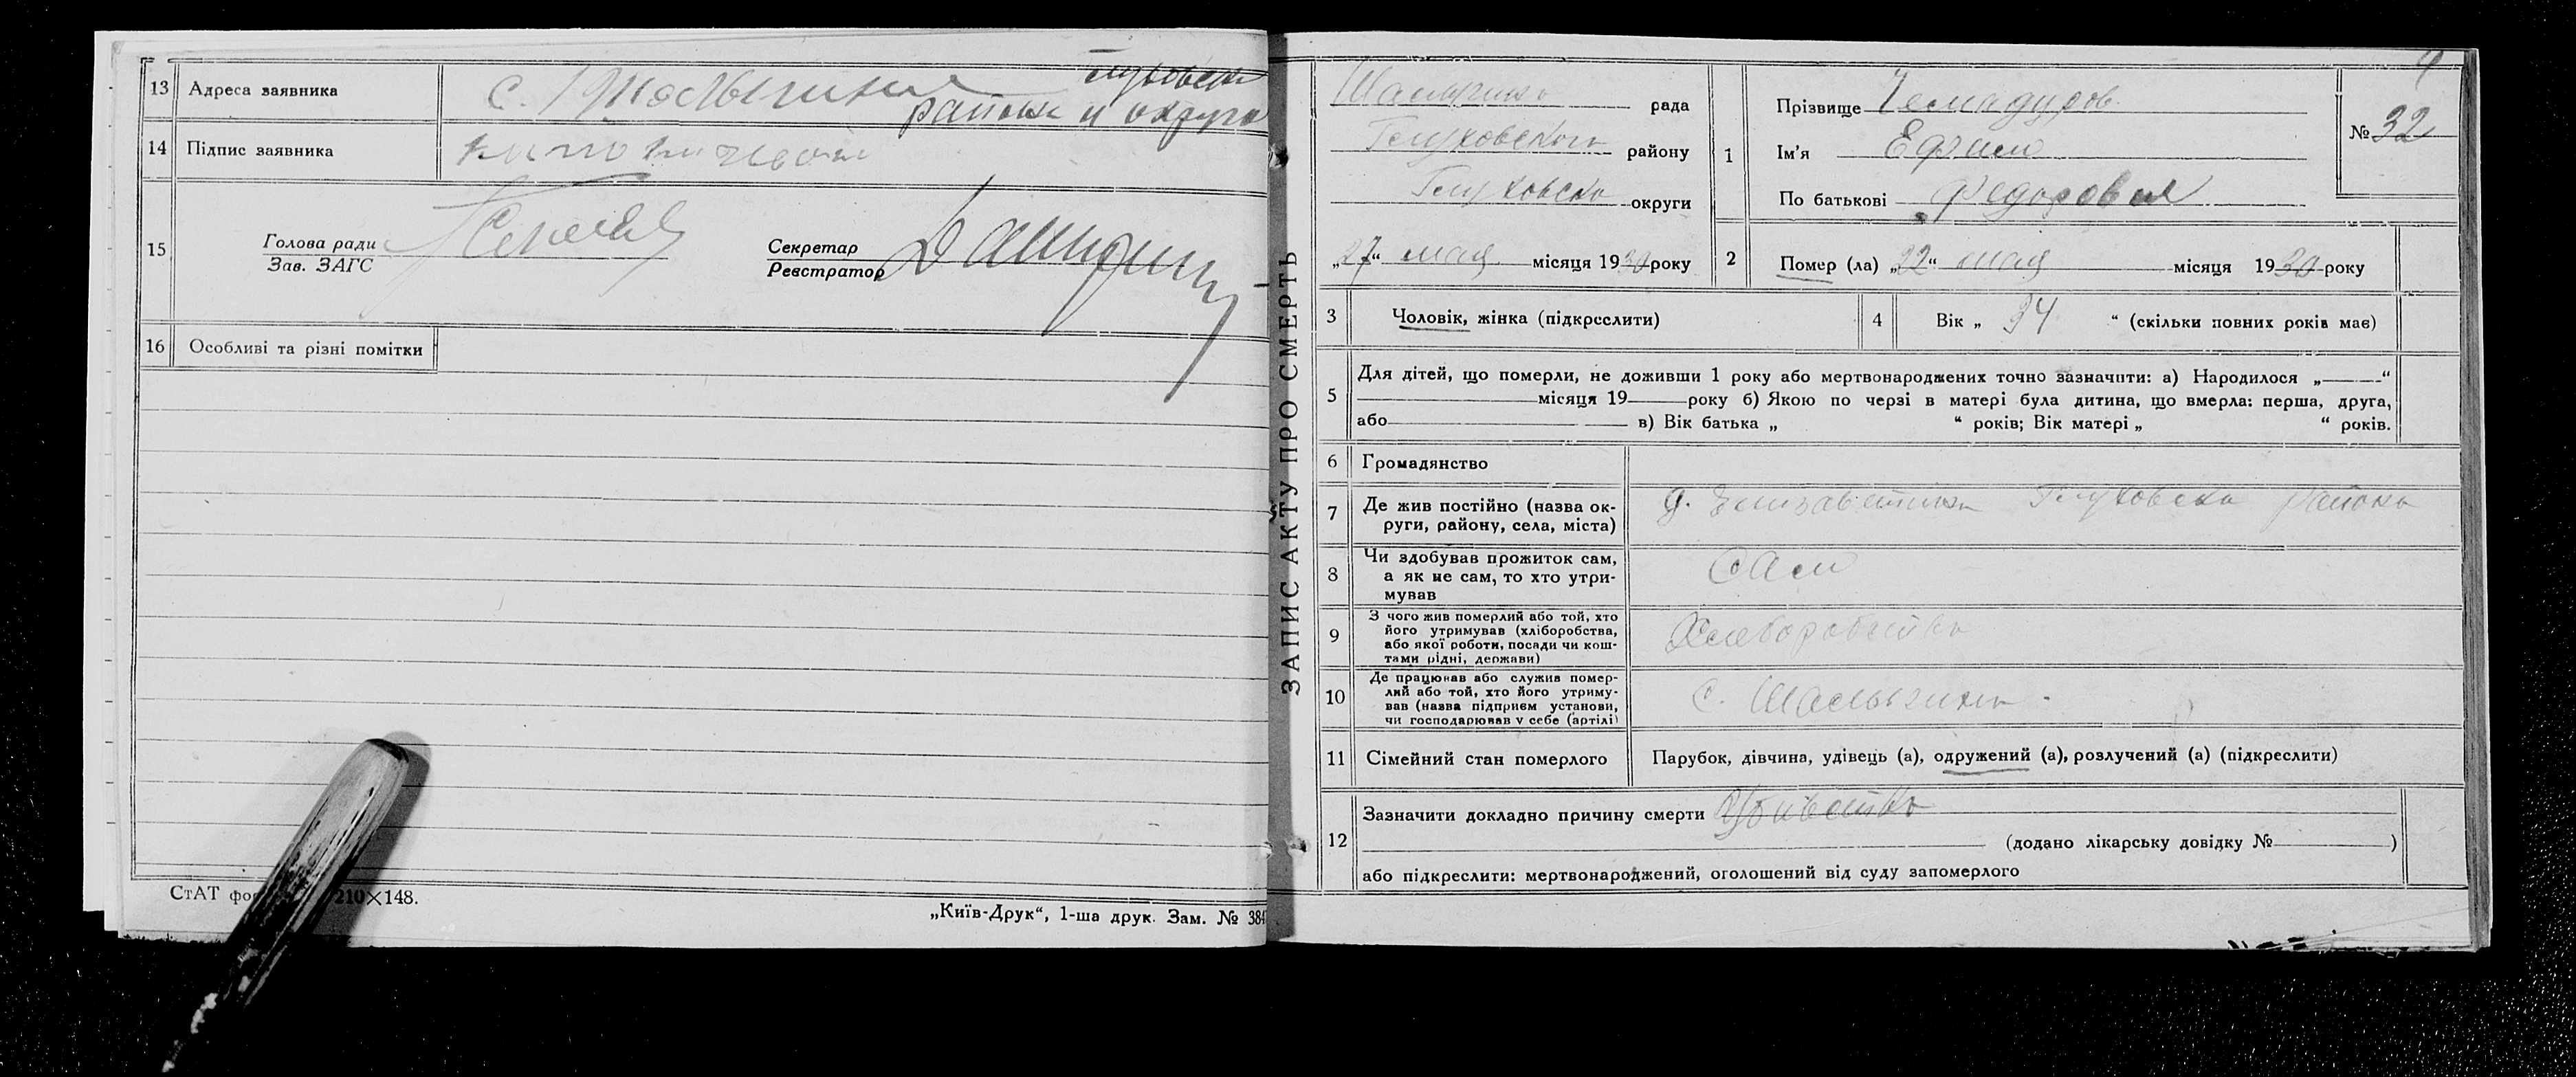 13 Адреса заявника с. Шалыгино Глуховск
района и округа
14 Підпис заявника
15 Голова ради
Зав. ЗАГС
Секретар
Реєстратор
16 Особливі та різні помітки
СтАТ 210×148.
„Київ-Друк“, 1-ша друк. Зам. № 384
ЗАПИС АКТУ ПРО СМЕРТЬ
Шалыгино рада
Глуховского району
Глуховско округи
„27“ мая місяця 1930 року
1 Прізвище
Ім'я Ефим
По батькові Федорович
№ 32
2 Помер (ла) „22“ мая місяця 1930 року
3 Чоловік, жінка (підкреслити)
4 Вік „ 34 “ (скільки повних років має)
5 Для дітей, що померли, не доживши 1 року або мертвонароджених точно зазначити: а) Народилося „——“
місяця 19——року б) Якою по черзі в матері була дитина, що вмерла: перша, друга,
або в) Вік батька „ “ років; Вік матері „ “ років.
6 Громадянство
7 Де жив постійно (назва ок-
руги, району, села, міста) д. Елизаветовка Глуховско района
8 Чи здобував прожиток сам,
а як не сам, то хто утри-
мував сам
9 З чого жив померлий або той, хто
його утримував (хліборобства,
або якої роботи, посади чи кош-
тами рідні, держави)
10 Де працював або служив помер-
лий або той, хто його утриму-
вав (назва підприєм установи,
чи господарював у себе (артілі) с. Шалыгино
11 Сімейний стан померлого Парубок, дівчина, удівець (а), одружений (а), розлучений (а) (підкреслити)
12 Зазначити докладно причину смерти Убийство
(додано лікарську довідку № )
або підкреслити: мертвонароджений, оголошений від суду запомерлого